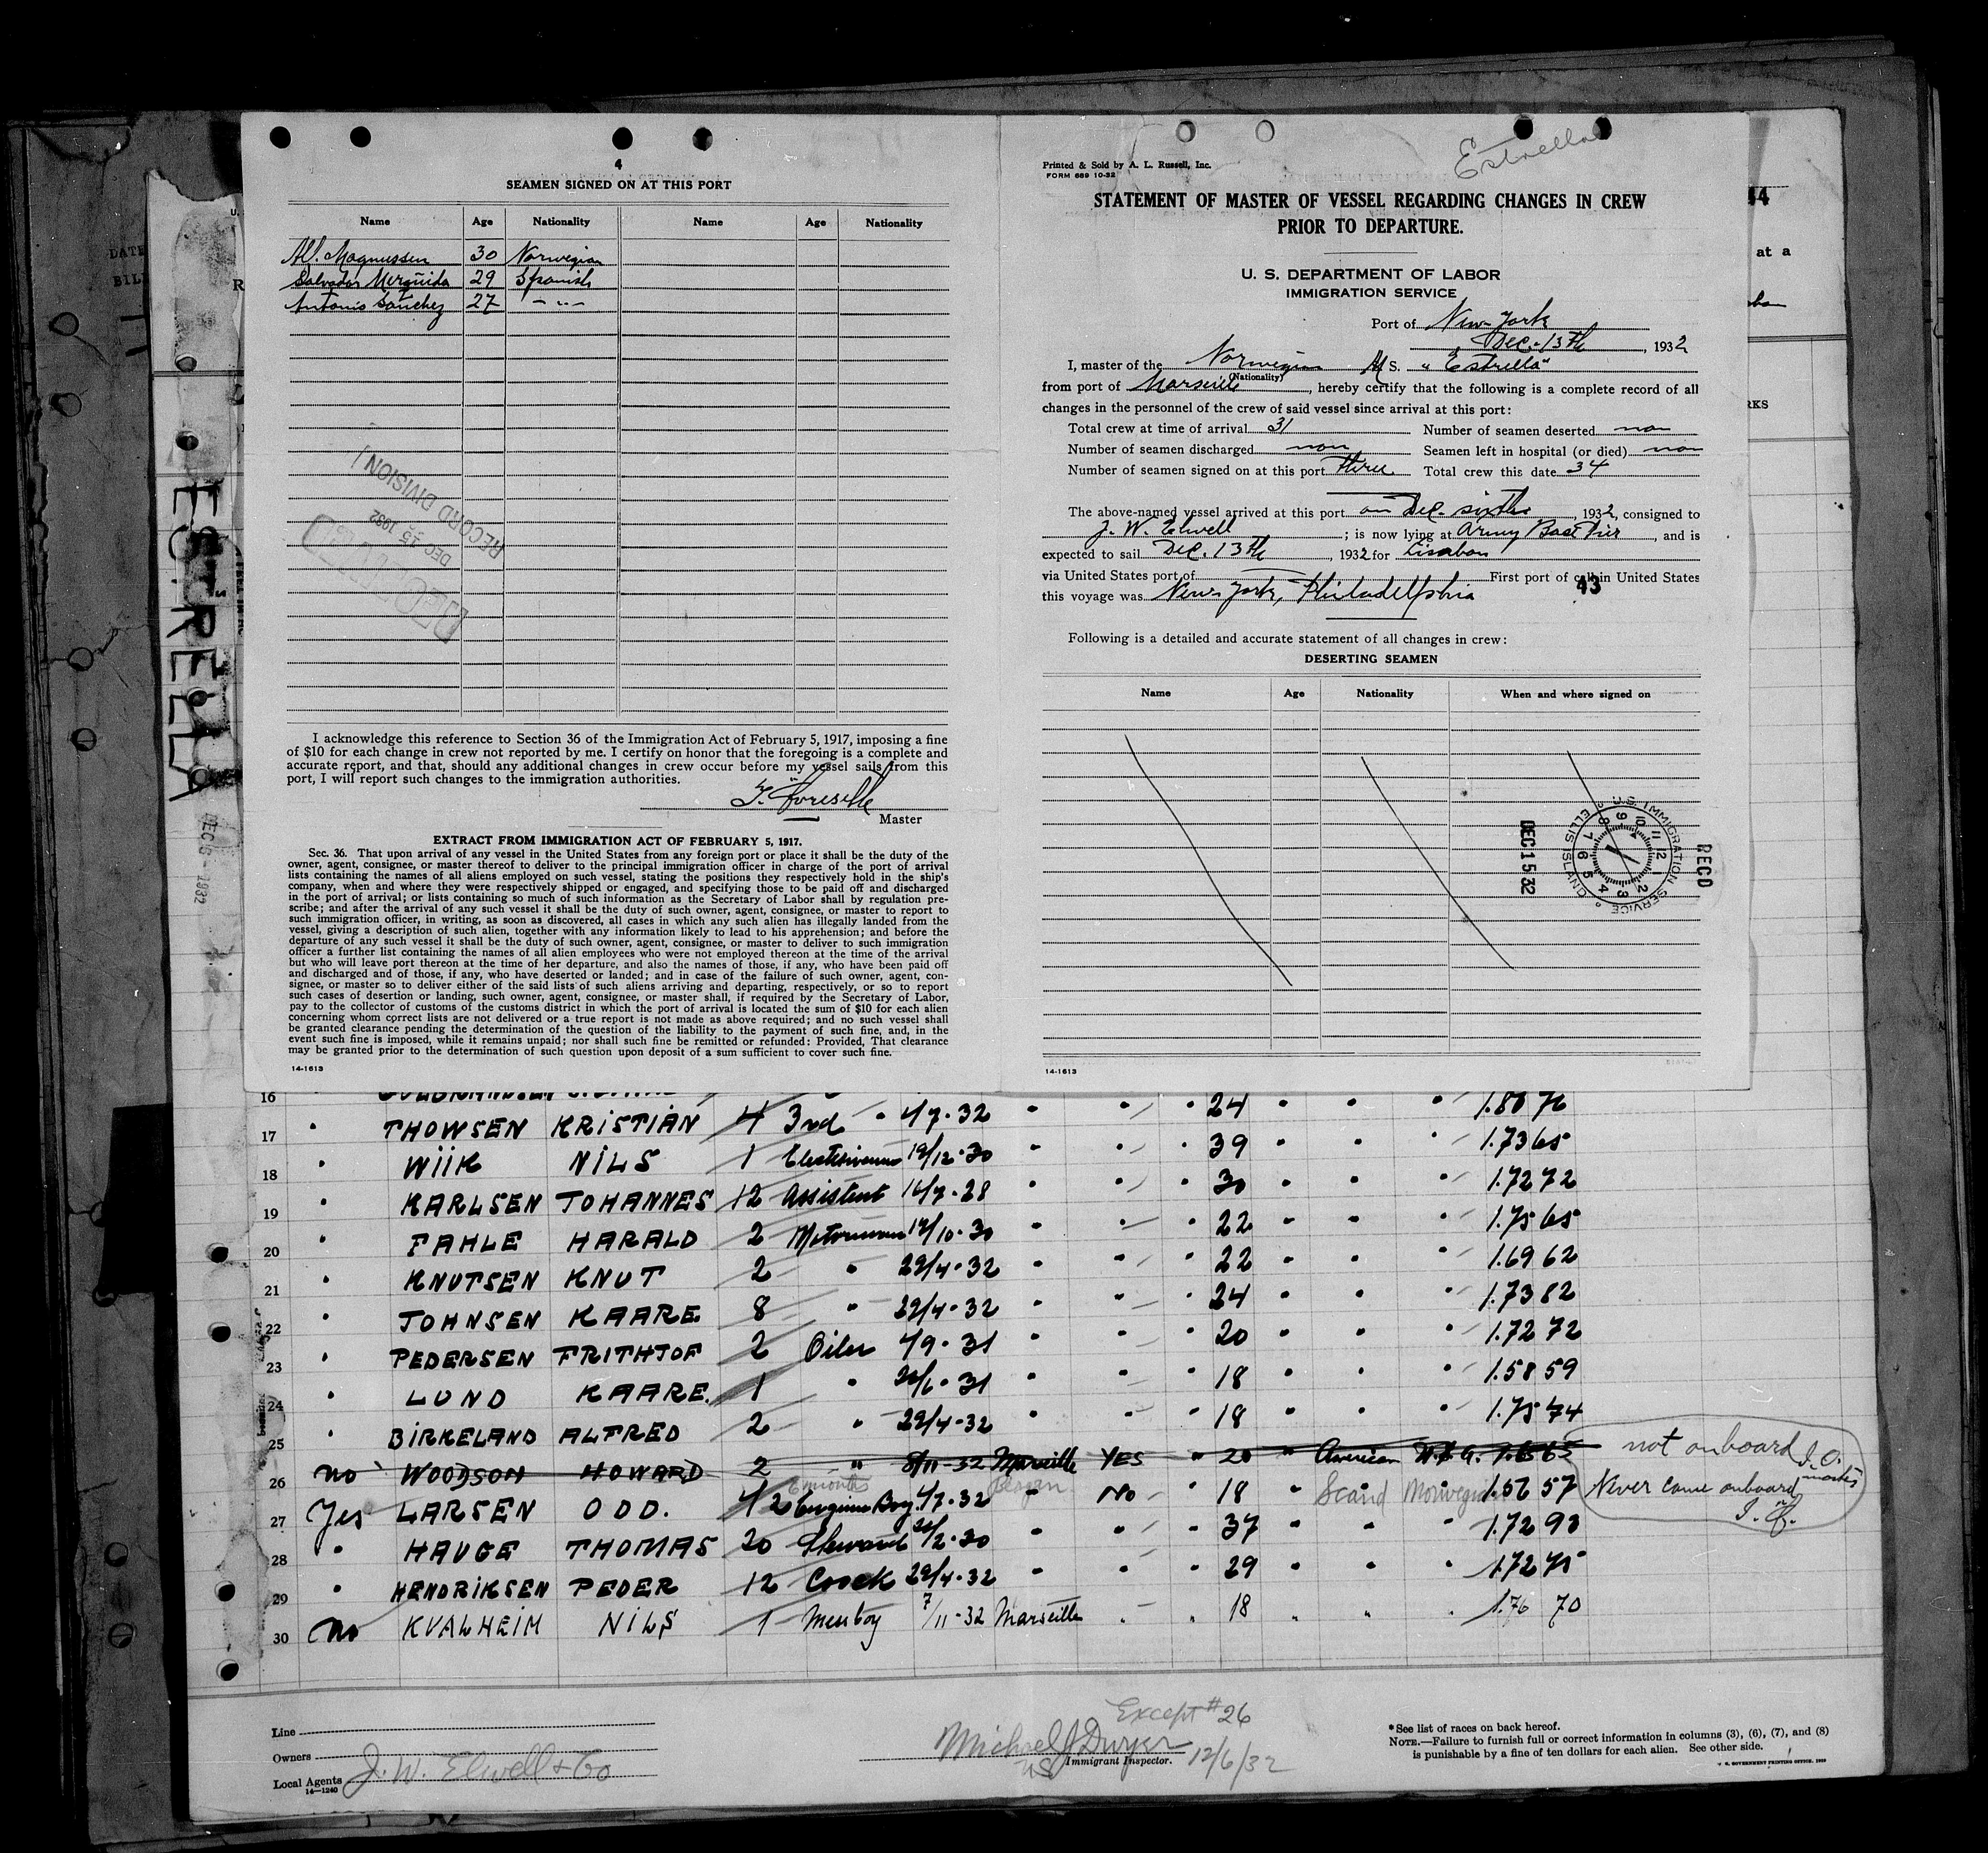 4
SEAMEN SIGNED ON AT THIS PORT
Name Age Nationality Name Age Nationality
Magnussen 30 Norwegian
Salvador 29 Spanish
Antonio Sanchez 27 - " -
I acknowledge this reference to Section 36 of the Immigration Act of February 5, 1917, imposing a fine
of $10 for each change in crew not reported by me. I certify on honor that the foregoing is a complete and
accurate report, and that, should any additional changes in crew occur before my vessel sails from this
port, I will report such changes to the immigration authorities.
Master
EXTRACT FROM IMMIGRATION ACT OF FEBRUARY 5, 1917.
Sec. 36. That upon arrival of any vessel in the United States from any foreign port or place it shall be the duty of the
owner, agent, consignee, or master thereof to deliver to the principal immigration officer in charge of the port of arrival
lists containing the names of all aliens employed on such vessel, stating the positions they respectively hold in the ship's
company, when and where they were respectively shipped or engaged, and specifying those to be paid off and discharged
in the port of arrival; or lists containing so much of such information as the Secretary of Labor shall by regulation pre-
scribe; and after the arrival of any such vessel it shall be the duty of such owner, agent, consignee, or master to report to
such immigration officer, in writing, as soon as discovered, all cases in which any such alien has illegally landed from the
vessel, giving a description of such alien, together with any information likely to lead to his apprehension; and before the
departure of any such vessel it shall be the duty of such owner, agent, consignee, or master to deliver to such immigration
officer a further list containing the names of all alien employees who were not employed thereon at the time of the arrival
but who will leave port thereon at the time of her departure, and also the names of those, if any, who have been paid off
and discharged and of those, if any, who have deserted or landed; and in case of the failure of such owner, agent, con-
signee, or master so to deliver either of the said lists of such aliens arriving and departing, respectively, or so to report
such cases of desertion or landing, such owner, agent, consignee, or master shall, if required by the Secretary of Labor,
pay to the collector of customs of the customs district in which the port of arrival is located the sum of $10 for each alien
concerning whom correct lists are not delivered or a true report is not made as above required; and no such vessel shall
be granted clearance pending the determination of the question of the liability to the payment of such fine, and, in the
event such fine is imposed, while it remains unpaid; nor shall such fine be remitted or refunded: Provided, That clearance
may be granted prior to the determination of such question upon deposit of a sum sufficient to cover such fine.
14-1613
RECORD DIVISION
DEC 15 1932
Estrella
Printed & Sold by A. L. Russell, Inc.
FORM 689 10-32
STATEMENT OF MASTER OF VESSEL REGARDING CHANGES IN CREW
PRIOR TO DEPARTURE.
U. S. DEPARTMENT OF LABOR
IMMIGRATION SERVICE
Port of New-York
Dec. 13th, 1932
I, master of the Norwegian M S. "Estrella"
(Nationality)
from port of Marseille, hereby certify that the following is a complete record of all
changes in the personnel of the crew of said vessel since arrival at this port:
Total crew at time of arrival 31 Number of seamen deserted non
Number of seamen discharged non Seamen left in hospital (or died) non
Number of seamen signed on at this port three Total crew this date 34
The above-named vessel arrived at this port on Dec. sixth, 1932, consigned to
J. W. Elwell; is now lying at Army Base Pier, and is
expected to sail Dec. 13th, 1932 for Lisabon
via United States port of First port of call in United States
this voyage was New York, Philadelphia
43
Following is a detailed and accurate statement of all changes in crew:
DESERTING SEAMEN
Name Age Nationality When and where signed on
U.S. IMMIGRATION SERVICE ELLIS ISLAND
RECD
DEC 15 32
14-1613
ESTRELLA
ESTRELLA
DEC 6 - 1932
44
at a
16
THOWSEN KRISTIAN 4 3rd " 4/7-32 " " " 24 " " " 1.80 76
17
WIIK NILS 1 19/12-30 " " 39 " " 1.73 65
18
KARLSEN JOHANNES 12 Assistent 16/7-28 " " " 30 " " " 1.72 72
19
FAHLE HARALD 2 Motorman 14/10-30 " " 22 " " " 1.75 65
20
KNUTSEN KNUT 2 " 29/4-32 " " " 22 " " " 1.69 62
21
JOHNSEN KAARE. 8 " 29/4-32 " " " 24 " " " 1.73 82
22
PEDERSEN FRITHJOF 2 Oiler 4/9-31 " " " 20 " " " 1.72 72
23
LUND KAARE. 1 " 20/6-31 " " " 18 " " " 1.58 59
24
BIRKELAND ALFRED 2 " 29/4-32 " " " 18 " " " 1.75 74
25
no WOODSON HOWARD 2 " 8/11-32 Marseille YES " 20 " American not onboard I.O.
26
Yes LARSEN ODD. 1/2 6 months Engine Boy 4/7-32 No " 18 " Scand Norwegian 1.56 57 Never came onboard
27
" HAUGE THOMAS 20 Steward 20/2-30 " " " 37 " " " 1.72 93
28
" HENDRIKSEN PEDER 12 Cook 29/4-32 " " " 29 " " " 1.72 75
29
no KVALHEIM NILS 1 Messboy 7/11-32 Marseille " " 18 " " " 1.76 70
30
Line
Owners
Local Agents J. W. Elwell & Co
14-1240
Except #26
Michael J Dwyer
Immigrant Inspector. 12/6/32
*See list of races on back hereof.
NOTE.—Failure to furnish full or correct information in columns (3), (6), (7), and (8)
is punishable by a fine of ten dollars for each alien. See other side.
U. S. GOVERNMENT PRINTING OFFICE